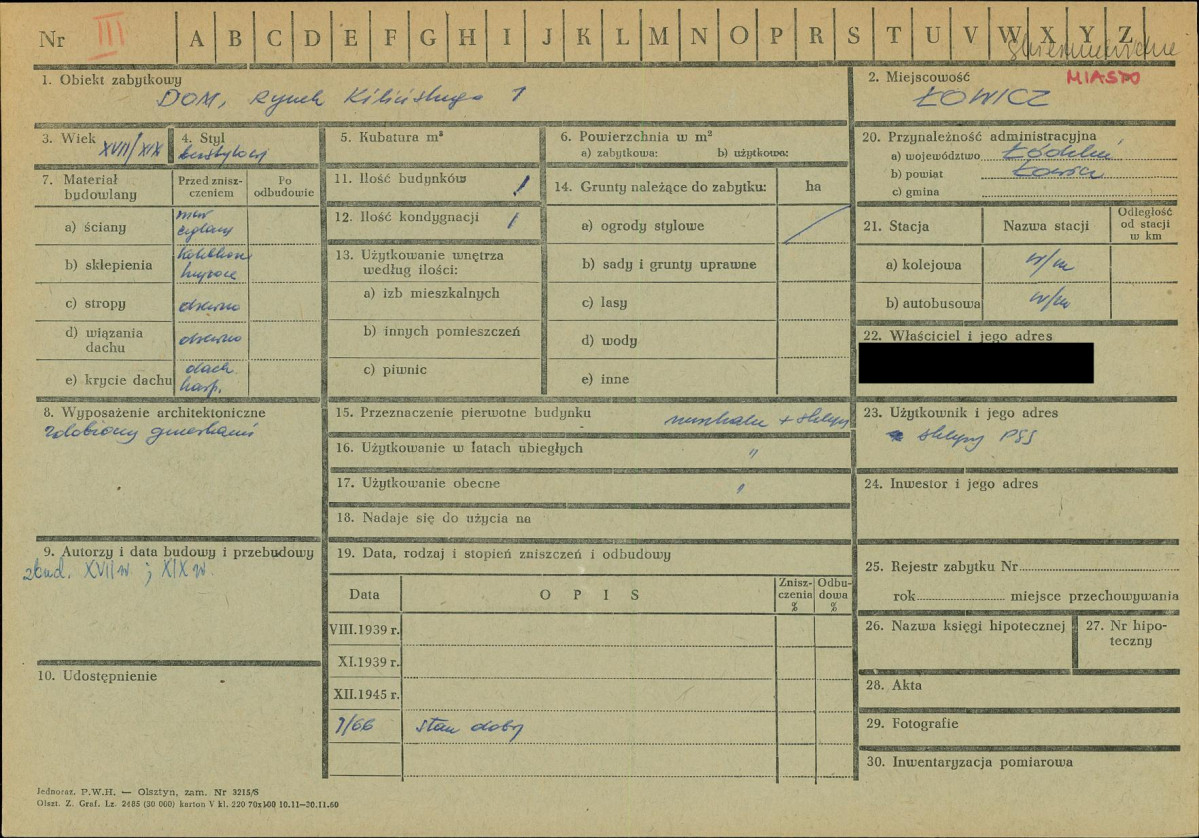 Nr III A B C D E F G H I J K L M N O P R S T U V W X Y Z
1. Obiekt zabytkowy
DOM, Rynek Kilińskiego 1
2. Miejscowość MIASTO
ŁOWICZ
3. Wiek XVII/XIX
4. Styl
bezstylowy
5. Kubatura m³
6. Powierzchnia w m²
a) zabytkowa: b) użytkowa:
7. Materiał budowlany
Przed zniszczeniem
Po odbudowie
a) ściany mur ceglany
b) sklepienia kolebkow
c) stropy drewno
d) wiązania dachu drewno
e) krycie dachu dach
8. Wyposażenie architektoniczne
zdobiony
9. Autorzy i data budowy i przebudowy
zbud. XVII w. ; XIX w.
10. Udostępnienie
11. Ilość budynków 1
12. Ilość kondygnacji 1
13. Użytkowanie wnętrza według ilości:
a) izb mieszkalnych
b) innych pomieszczeń
c) piwnic
14. Grunty należące do zabytku: ha
a) ogrody stylowe
b) sady i grunty uprawne
c) lasy
d) wody
e) inne
15. Przeznaczenie pierwotne budynku mieszkalne + sklepy
16. Użytkowanie w latach ubiegłych "
17. Użytkowanie obecne "
18. Nadaje się do użycia na
19. Data, rodzaj i stopień zniszczeń i odbudowy
Data OPIS Zniszczenia % Odbudowa %
VIII.1939 r.
XI.1939 r.
XII.1945 r.
9/66 stan dobry
20. Przynależność administracyjna
a) województwo Łódzkie
b) powiat Łowicz
c) gmina
21. Stacja Nazwa stacji Odległość od stacji w km
a) kolejowa w/m
b) autobusowa w/m
22. Właściciel i jego adres
23. Użytkownik i jego adres
sklepy PSS
24. Inwestor i jego adres
25. Rejestr zabytku Nr
rok miejsce przechowywania
26. Nazwa księgi hipotecznej
27. Nr hipoteczny
28. Akta
29. Fotografie
30. Inwentaryzacja pomiarowa
Jednoraz. P.W.H. — Olsztyn, zam. Nr 3215/S
Olszt. Z. Graf. Lz. 2485 (30 000) karton V kl. 220 70x100 10.11—30.11.60